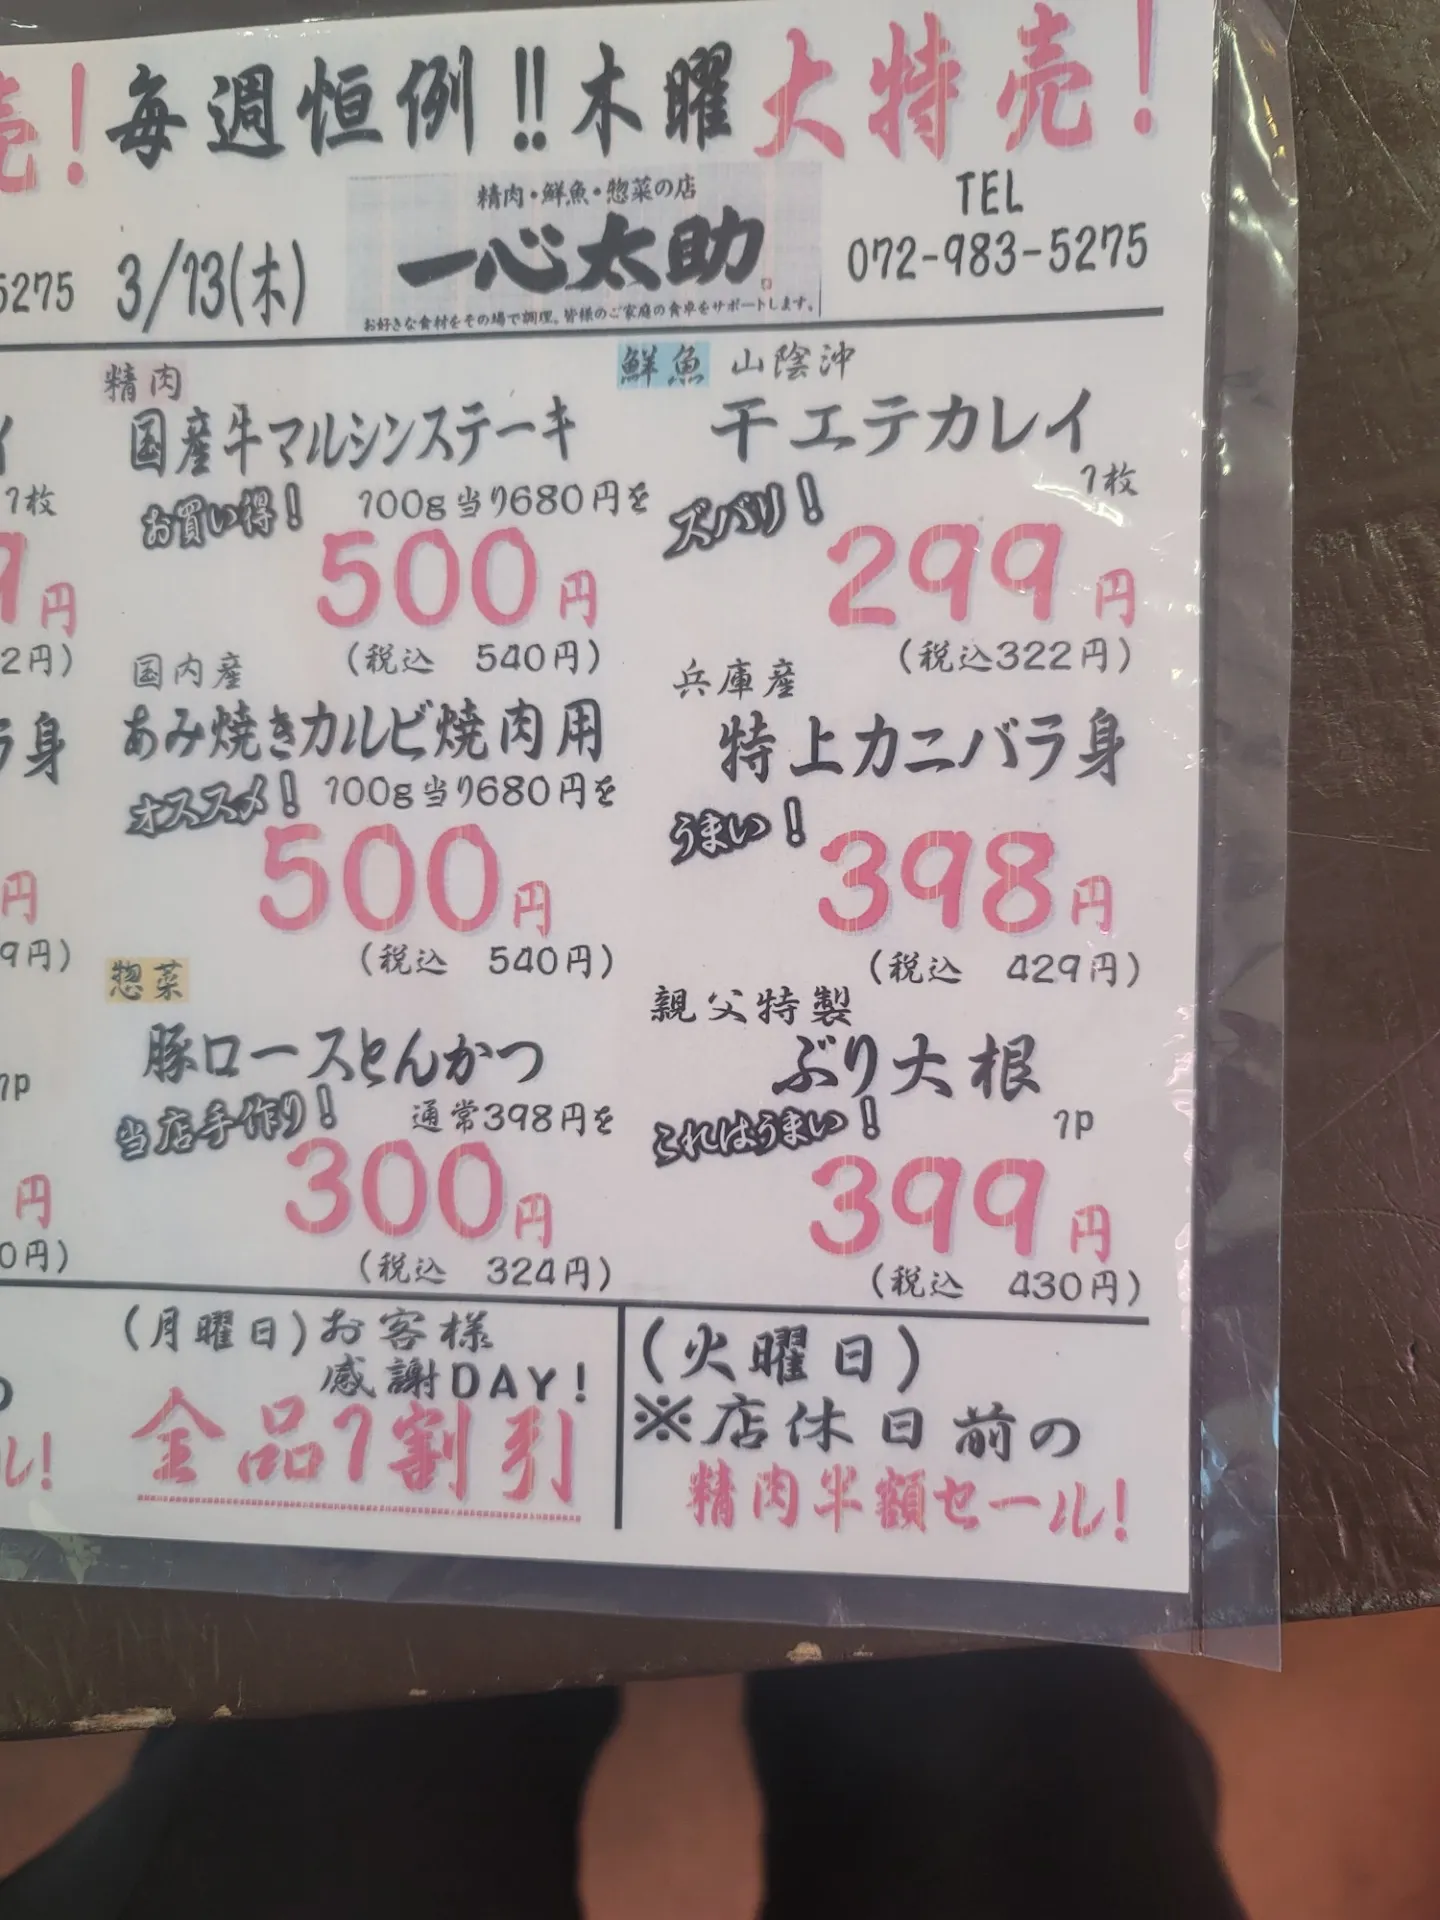 売！毎週恒例!!木曜大特売！
精肉・鮮魚・惣菜の店
一心太助
お好きな食材をその場で調理。皆様のご家庭の食卓をサポートします。
5275 3/13(木)
TEL
072-983-5275
イ
1枚
9円
2円)
ラ身
円
9円)
1P
円
0円)
ル!
精肉
国産牛マルシンステーキ
お買い得！ 100g当り680円を
500円
(税込 540円)
国内産
あみ焼きカルビ焼肉用
オススメ！ 100g当り680円を
500円
(税込 540円)
惣菜
豚ロースとんかつ
当店手作り！ 通常398円を
300円
(税込 324円)
鮮魚 山陰沖
干エテカレイ
1枚
ズバリ！
299円
(税込322円)
兵庫産
特上カニバラ身
うまい！
398円
(税込 429円)
親父特製
ぶり大根
1P
これはうまい！
399円
(税込 430円)
(月曜日)お客様
感謝DAY!
全品1割引
(火曜日)
※店休日前の
精肉半額セール!